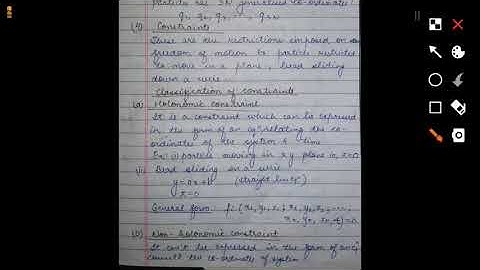 particle are 3N generalised co-ordinates
q₁, q₂, q₃, ... q₃ₙ
(4) Constraints
These are the restrictions imposed on
freedom of motion to particle restricted
to move in a plane, bead sliding
down a wire.
Classification of constraints
(a) Holonomic constraint
It is a constraint which can be expressed
in the form of an eqⁿ relating the co-
ordinates of the system & time
Ex: (i) particle moving in xy plane in z=0
(ii) Bead sliding on a wire
(straight line)
z=0
General form
(b) Non-Holonomic constraint
It can't be expressed in the form of an eqⁿ
the co-ordinate of system